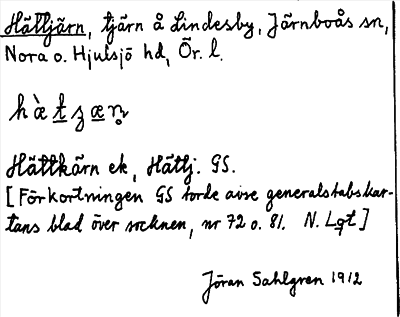 Hättjärn, tjärn å Lindesby, Järnboås sn,
Nora o. Hjulsjö hd, Ör. l.
hὰtzæṇ
Hättkärn ek, Hättj. GS.
[Förkortningen GS torde avse generalstabskar-
tans blad över socknen, nr 72 o. 81. N. Lgt]
Jöran Sahlgren 1912